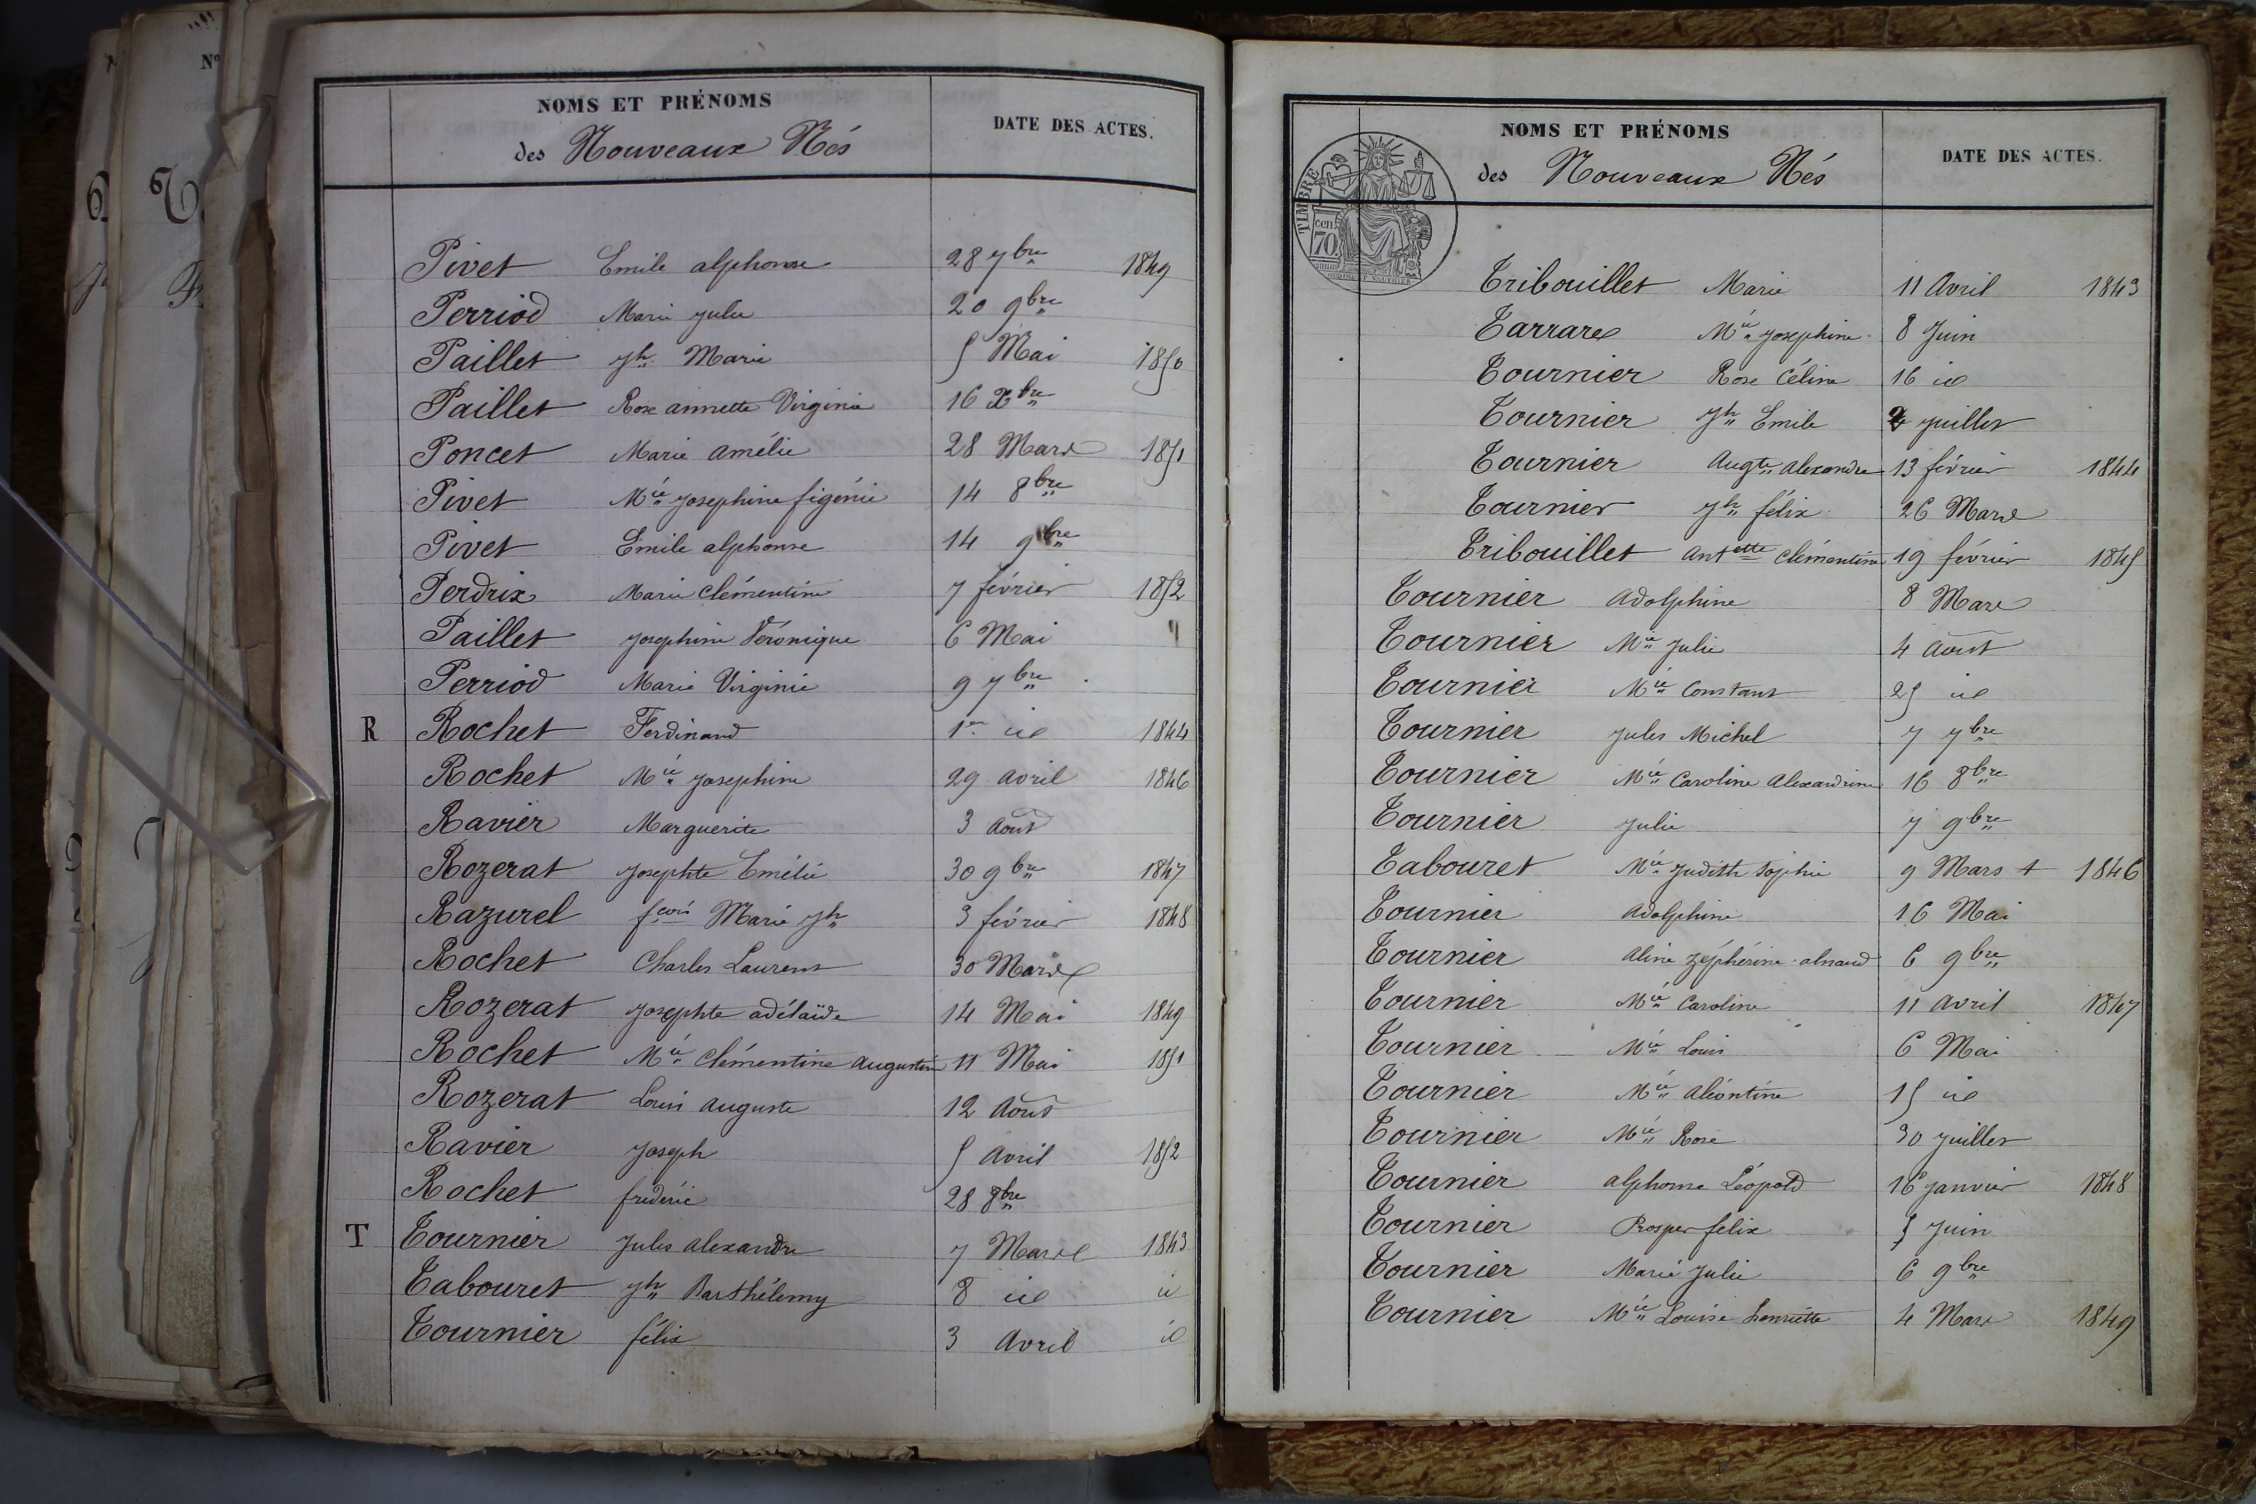 NOMS ET PRÉNOMS
DATE DES ACTES.
des Nouveaux Nés
Pivet Emile alphonse 28 7bre 1849
Perriod Marie julie 20 9bre
Paillet Jh Marie 5 Mai 1850
Paillet Rose annette Virginie 16 Xbre
Poncet Marie amélie 28 Mars 1851
Pivet Mie josephine figénie 14 8bre
Pivet Emile alphonse 14 9bre
Perdrix Marie Clémentine 7 février 1852
Paillet josephine Véronique 6 Mai "
Perriod Marie Virginie 9 7bre
R Rochet Ferdinand 1er id 1844
Rochet Mie josephine 29 avril 1846
Ravier Marguerite 3 Aout
Rozerat josephte Emélie 30 9bre 1847
Razurel fçois Marie Jh 3 février 1848
Rochet Charles Laurent 30 Mars
Rozerat josephte adélaïde 14 Mai 1849
Rochet Mie Clémentine augustine 11 Mai 1851
Rozerat Louis auguste 12 Aout
Ravier Joseph 5 avril 1852
Rochet frédéric 28 8bre
T Tournier Jules alexandre 7 Mars 1843
Tabouret Jh Barthélemy 8 id id
Tournier félix 3 Avril id
NOMS ET PRÉNOMS
DATE DES ACTES.
des Nouveaux Nés
TIMBRE
70 cen
Tribouillet Marie 11 Avril 1843
Tarrare Mie josephine 8 Juin
Tournier Rose Céline 16 id
Tournier Jh Emile juillet
Tournier Augte alexandre 13 février 1844
Tournier Jh félix 26 Mars
Tribouillet antette Clémentine 19 février 1845
Tournier adolphine 8 Mars
Tournier Mie julie 4 aout
Tournier Mie Constant 25 id
Tournier jules Michel 7 7bre
Tournier Mie Caroline Alexandrine 16 8bre
Tournier julie 7 9bre
Tabouret Mie judith Sophie 9 Mars + 1846
Tournier adolphine 16 Mai
Tournier aline zéphérine 6 9bre
Tournier Mie Caroline 11 avril 1847
Tournier Mie Louis 6 Mai
Tournier Mie aléontine 15 id
Tournier Mie Rose 30 juillet
Tournier alphonse Léopold 16 janvier 1848
Tournier Prosper félix 5 juin
Tournier Marie julie 6 9bre
Tournier Mie Louise henriette 4 Mars 1849